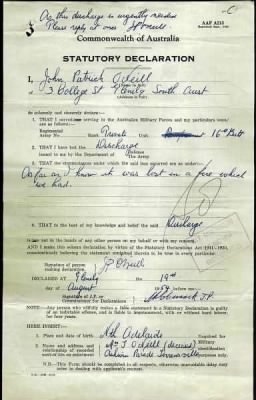 As this discharge is urgently needed
Please reply at once
AAF A210
Commonwealth of Australia
STATUTORY DECLARATION
I, John Patrick O'Neill
of 3 College St South
do solemnly and sincerely declare:
1. THAT I serving in the Australian Military Forces and my particulars were
as follows:
Regimental
Army No. Rank Private Unit 16th Batt
2. THAT I have lost the Discharge
issued to me by the Department of Defence
The Army
3. THAT the circumstances under which the said loss occurred are as under:
As far as I know it was lost in a fire which
we had.
4. THAT to the best of my knowledge and belief the said Discharge
is not in the hands of any other person on my behalf or with my consent.
AND I make this solemn declaration by virtue of the Statutory Declarations Act 1911-
conscientiously believing the statement contained therein to be true in every particular.
Signature of person
making declaration J P O'Neill
DECLARED AT the 19th
day of August 1954 before me
Signature of J.P. or
Commissioner for Declarations J.P.
NOTE: Any person who wilfully makes a false statement in a Statutory Declaration is guilty
of an indictable offence, and is liable to imprisonment, with or without hard labour
for four years.
HERE INSERT:
1. Place and date of birth Nth Adelaide
2. Name and address and
relationship of recorded
next of kin on enlistment
Required for
Military
identification
of applicant.
O'Neill (deceased)
Parade
N.B. This Form should be completed in all respects, otherwise unavoidable delay may
occur in dealing with applicant's request.